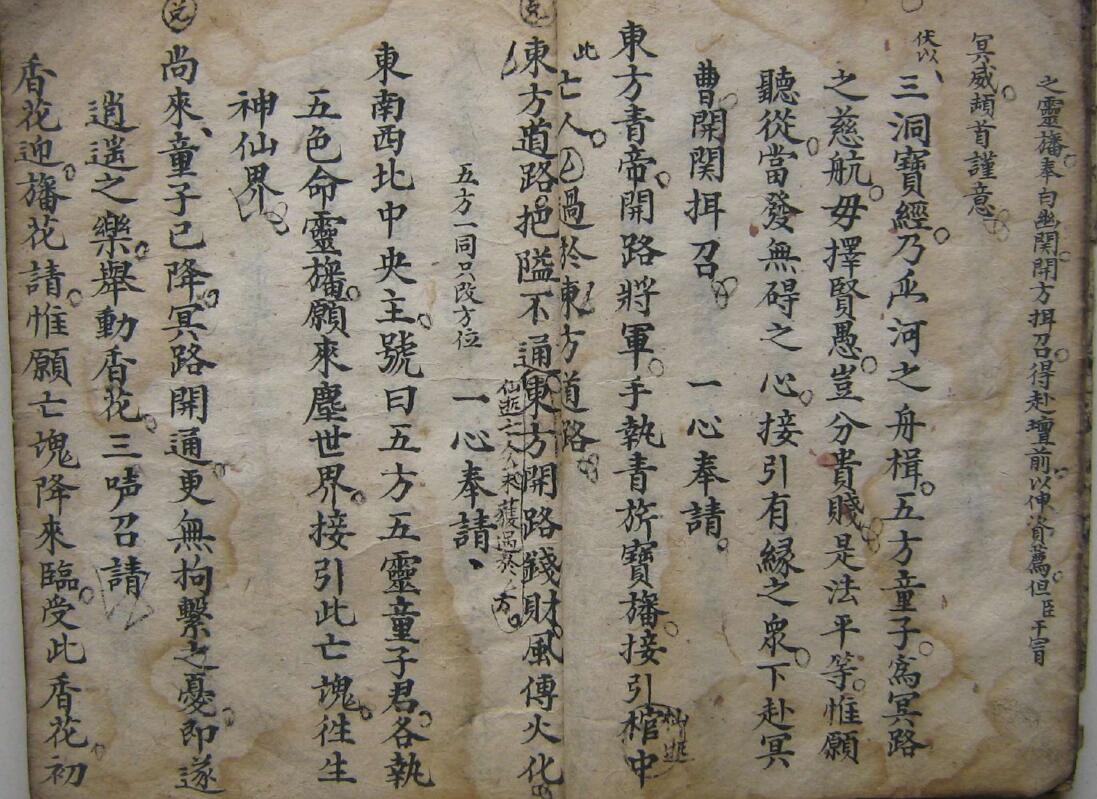 之靈旛奉白幽関開方拜召得赴壇前以伸資薦但臣干冒
冥威頓首謹意
伏以
三洞寶經乃血河之舟楫五方童子為冥路
之慈航毋擇賢愚豈分貴賤是法平等惟願
聽從當發無碍之心接引有緣之衆下赴冥
曹開関拜召 一心奉請
東方青帝開路將軍手執青旂寶旛接引棺中
仙逝
此亡人過於東方道路
東方道路挹隘不通東方開路錢財風傳火化
五方一同只改方位 一心奉請
東南西北中央主號曰五方五靈童子君各執
五色命靈旛願來塵世界接引此亡魂徃生
神仙界
尚來童子已降冥路開通更無拘繫之憂即遂
逍遥之樂舉動香花三唪召請
香花迎旛花請惟願亡魂降來臨受此香花初